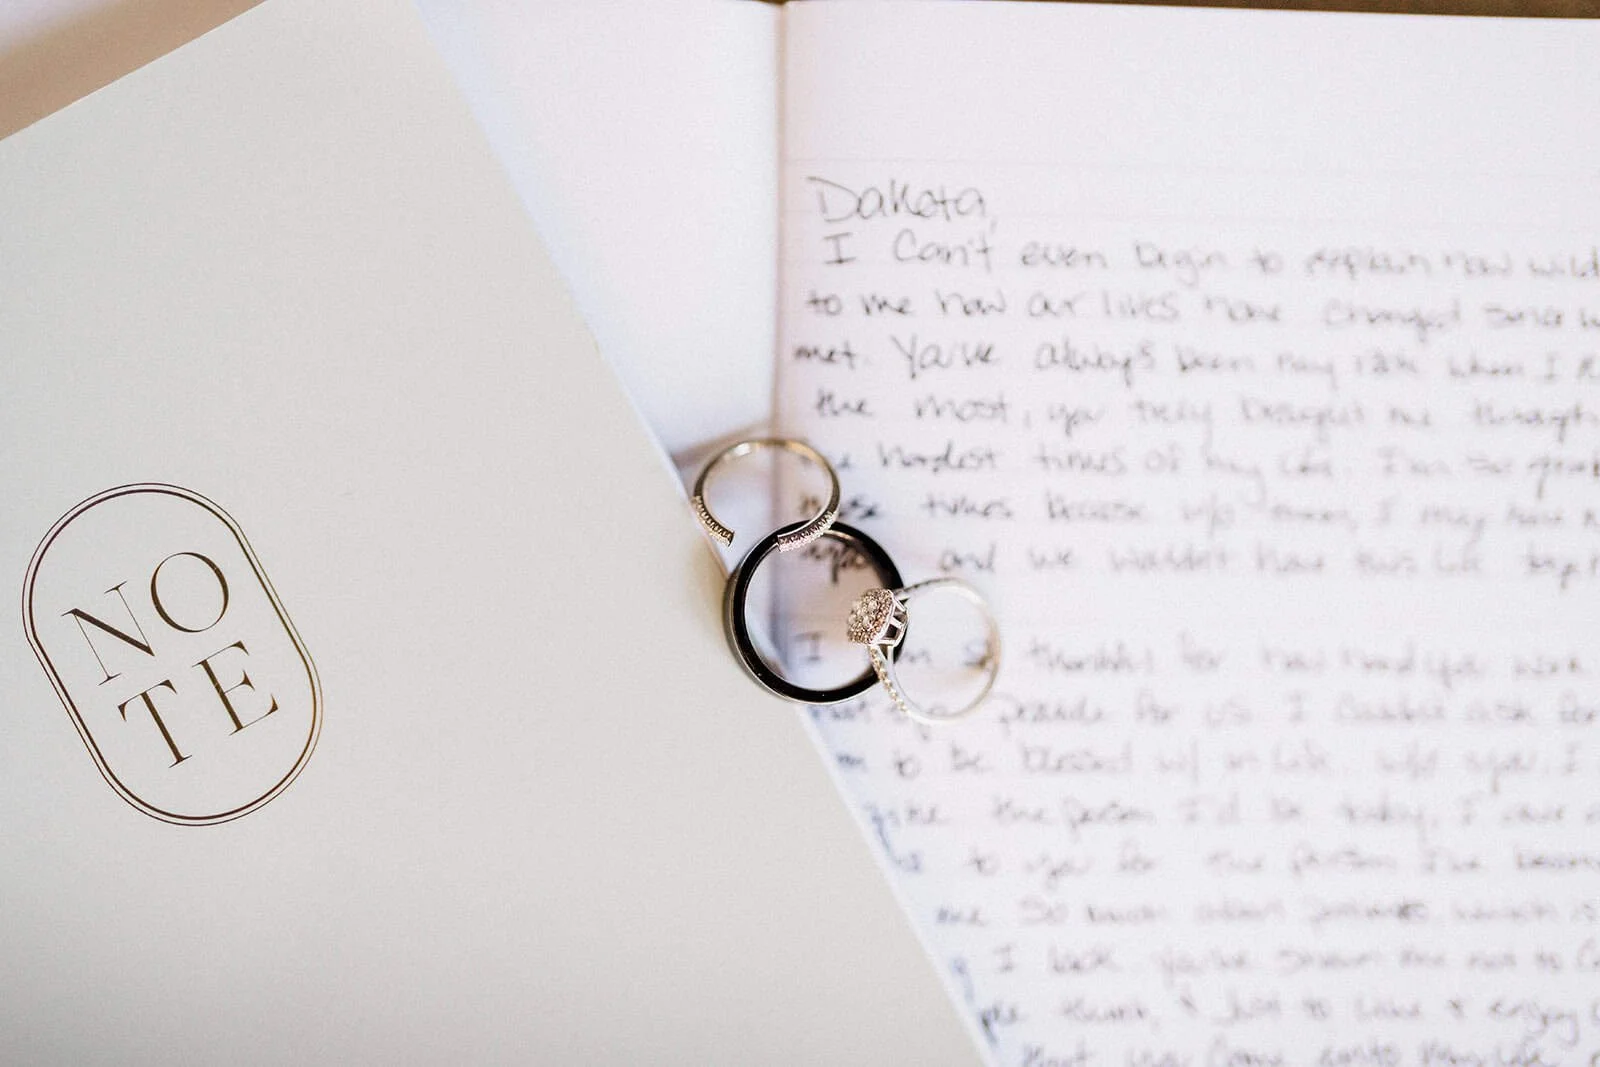 NO
TE
Dakota,
I Can't even begin to explain how wild
to me how our lives have changed since
met. You've always been my rock when I
the most, you truly brought me through
hardest times of my life. I'm so
times because w/o them, I may have
and we wouldn't have this life
I am so thankful for how hard you work
provide for us. I couldn't ask for
to be blessed w/ in life. w/o you, I
the person I'd be today. I owe
to you for the person I've become
me so much about patience, which is
I lack. You've shown me not to
think, & just to live & enjoy
that you came into my life